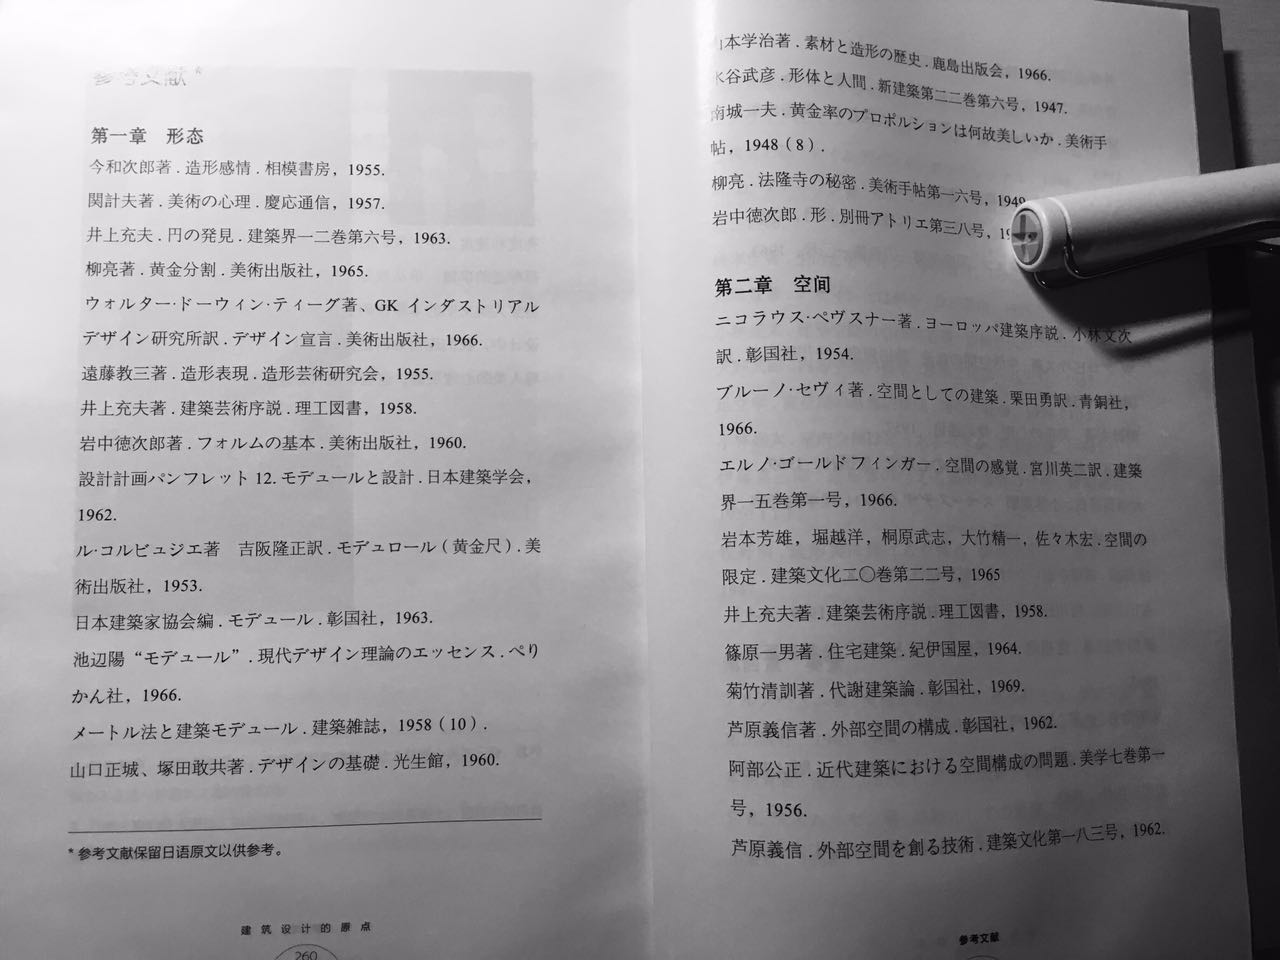 参考文献*
第一章 形态
今和次郎著．造形感情．相模書房，1955.
関計夫著．美術の心理．慶応通信，1957.
井上充夫．円の発見．建築界一二巻第六号，1963.
柳亮著．黄金分割．美術出版社，1965.
ウォルター·ドーウィン·ティーグ著、GK インダストリアル
デザイン研究所訳．デザイン宣言．美術出版社，1966.
遠藤教三著．造形表現．造形芸術研究会，1955.
井上充夫著．建築芸術序説．理工図書，1958.
岩中徳次郎著．フォルムの基本．美術出版社，1960.
設計計画パンフレット 12. モデュールと設計．日本建築学会，
1962.
ル·コルビュジエ著 吉阪隆正訳．モデュロール（黄金尺）．美
術出版社，1953.
日本建築家協会編．モデュール．彰国社，1963.
池辺陽“モデュール”．現代デザイン理論のエッセンス．ぺり
かん社，1966.
メートル法と建築モデュール．建築雑誌，1958（10）.
山口正城、塚田敢共著．デザインの基礎．光生館，1960.
* 参考文献保留日语原文以供参考。
建筑设计的原点
260
山本学治著．素材と造形の歴史．鹿島出版会，1966.
水谷武彦．形体と人間．新建築第二二巻第六号，1947.
南城一夫．黄金率のプロポルションは何故美しいか．美術手
帖，1948（8）.
柳亮．法隆寺の秘密．美術手帖第一六号，1949
岩中徳次郎．形．別冊アトリエ第三八号，
第二章 空间
ニコラウス·ペヴスナー著．ヨーロッパ建築序説．小林文次
訳．彰国社，1954.
ブルーノ·セヴィ著．空間としての建築．栗田勇訳．青銅社，
1966.
エルノ·ゴールドフィンガー．空間の感覚．宮川英二訳．建築
界一五巻第一号，1966.
岩本芳雄，堀越洋，桐原武志，大竹精一，佐々木宏．空間の
限定．建築文化二〇巻第二二号，1965
井上充夫著．建築芸術序説．理工図書，1958.
篠原一男著．住宅建築．紀伊国屋，1964.
菊竹清訓著．代謝建築論．彰国社，1969.
芦原義信著．外部空間の構成．彰国社，1962.
阿部公正．近代建築における空間構成の問題．美学七巻第一
号，1956.
芦原義信．外部空間を創る技術．建築文化第一八三号，1962.
参考文献